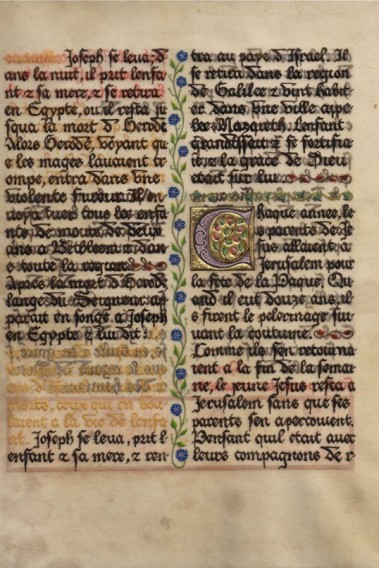 Joseph se leva; d
ans la nuit, il prit lenfa
nt z sa mere, z se retira
en Egypte, ou il resta ju
squa la mort d Herode
Alors Herode, voyant qu
e les mages lavaient tr
ompe, entra dans vne
violente fureur. Il en
voya tuer tous les enfa
nts, de moins de deux
ans a Bethleem z dan
s toute la region
Apres la mort d Herode
lange du Seigneur ap
parait en songe a Joseph
en Egypte z lui dit:
ceux qui en vou
laient a la vie de lenfa
nt. Joseph se leva, prit l
enfant z sa mere, z ren
tra au pays d Israel. Il
se retira dans la region
de Galilee z vint habit
er dans vne ville appe
lee Nazareth. Lenfant
grandissait z se fortifia
it, z la grace de Dieu
etait sur lui.
Chaque annee, le
s parents de Je
sus allaient a
Jerusalem pour
la fete de la Paque. Qu
and il eut douze ans, il
s firent le pelerinage sui
vant la coutume.
Comme ils sen retourna
ient a la fin de la semai
ne, le jeune Jesus resta a
Jerusalem sans que ses
parents sen apercoivent.
Pensant quil etait avec
leurs compagnons de r